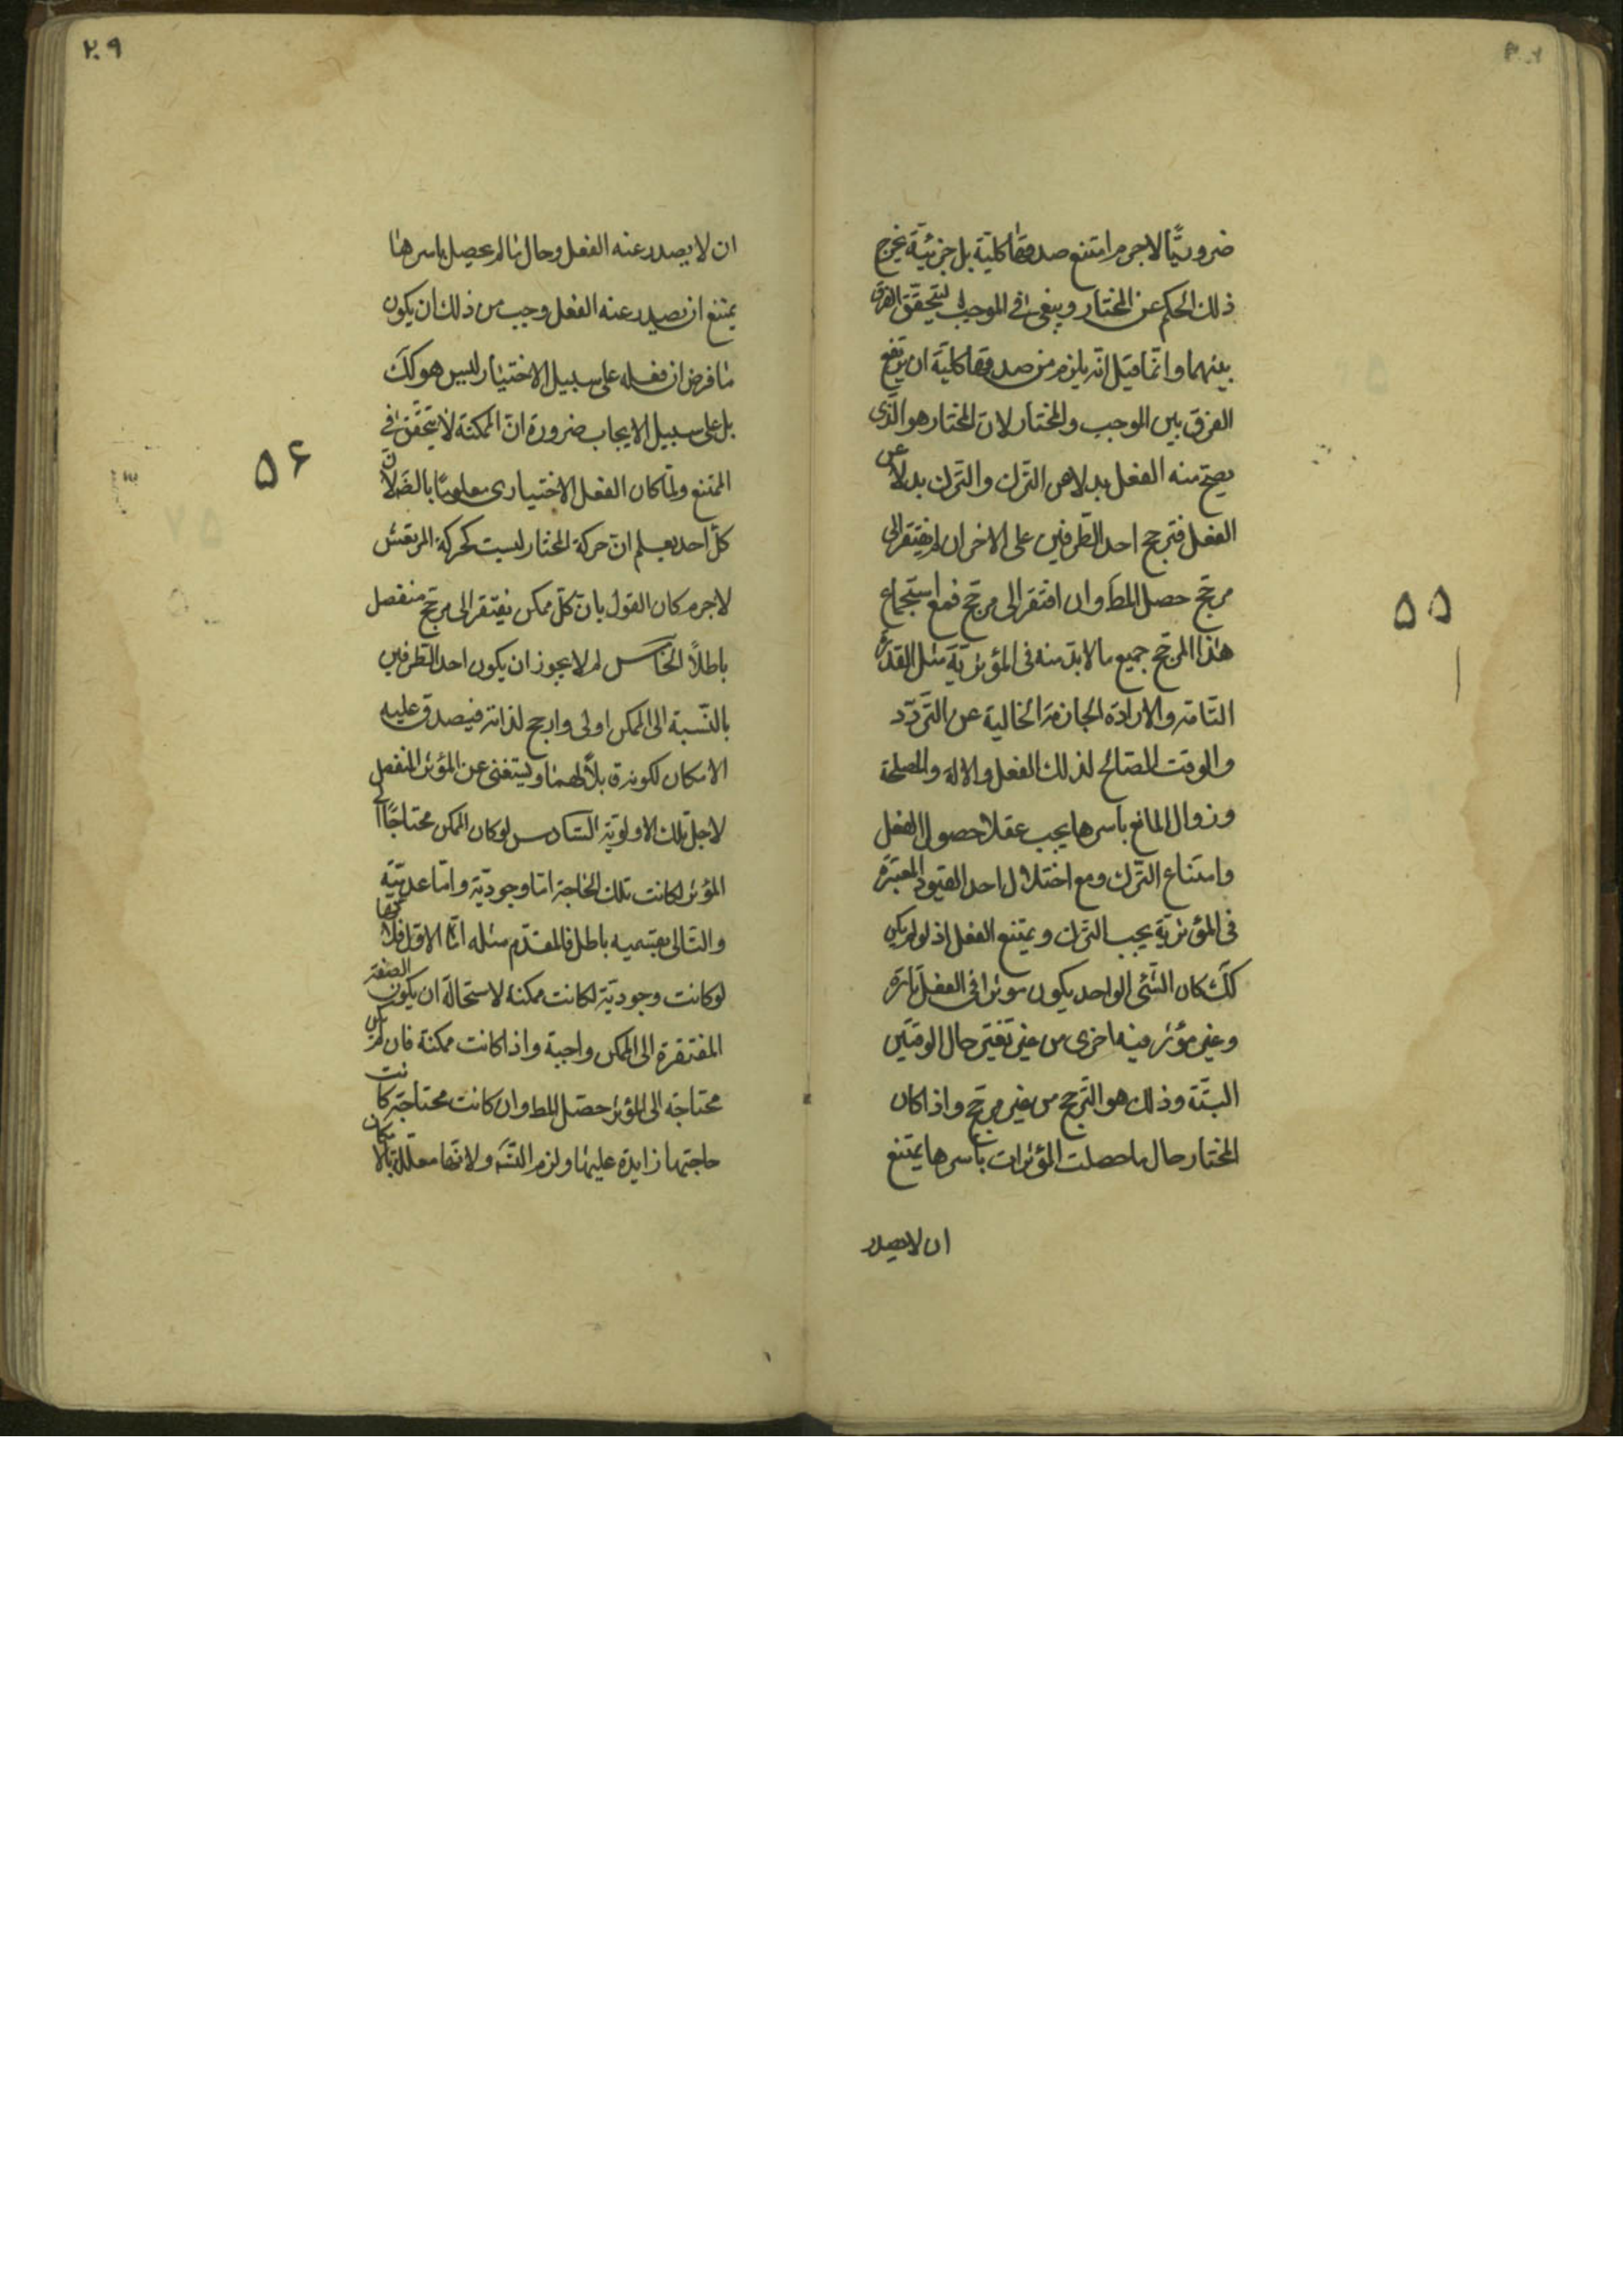 ضروريّا لاجرم امتنع صدقها كلّية بل جزئيّة يخرج
ذلك الحكم عن المختار ويبقى فى الموجب ليتحقّق الفرق
بينهما وانّما قيل انّه يلزم من صدقها كليّة ان يرتفع
الفرق بين الموجب والمختار لان المختار هو الّذى
يصحّ منه الفعل بدلا من الترك والترك بدلا عن
الفعل فترجح احد الطّرفين على الاخر ان لم يفتقر الى
مرجّح حصل المط وان افتقر الى مرجّح فمع استجماع
هذا المرجّح جميع ما لابدّ منه فى المؤثريّة مثل القدرة
التّامة والارادة الجازمة الخالية عن التّردّد
والوقت الصّالح لذلك الفعل والالة والمصلحة
وزوال المانع باسرها يجب عقلا حصول الفعل
وامتناع التّرك ومع اختلال احد القيود المعتبرة
فى المؤثريّة يجب الترك ويمتنع الفعل اذ لو لم يكن
كك كان الشّئ الواحد يكون موثرا فى الفعل تارة
وغير مؤثر فيه اخرى من غير تغيّر حال الوقتين
البتّة وذلك هو التّرجح من غير مرجّح واذا كان
المختار حال ما حصلت المؤثرات باسرها يمتنع
ان لا يصدر
۵۵
۲۰۹
ان لا يصدر عنه الفعل وحال ما لم يحصل باسرها
يمتنع ان يصدر عنه الفعل وجب من ذلك ان يكون
ما فرض ان فعله على سبيل الاختيار ليس هو كك
بل على سبيل الايجاب ضرورة انّ المكنة لا يتحقّق فى
الممتنع ولمّا كان الفعل الاختيارى معلومًا بالضّ لانّ
كلّ احد يعلم انّ حركة المختار ليست كحركة المرتعش
لاجرم كان القول بانّ كلّ ممكن يفتقر الى مرجّح منفصل
باطلًا الخامس لم لا يجوز ان يكون احد الطرفين
بالنّسبة الى الممكن اولى وارجح لذاته فيصدق عليه
الامكان لكونه قابلًا لهما ويستغنى عن المؤثر المنفصل
لاجل تلك الاولويّة السّادس لو كان الممكن محتاجًا الى
المؤثر لكانت تلك الحاجة امّا وجوديّة وامّا عدميّة
والتالى بقسميه باطل فالمقدّم مثله امّا الاوّل فلانّها
لو كانت وجوديّة لكانت ممكنة لاستحالة ان يكون الصفة
المفتقرة الى الممكن واجبة واذا كانت ممكنة فان لم يكن
محتاجة الى المؤثر حصل المط وان كانت محتاجة كانت
حاجتها زايدة عليها ولزم التّسّ ولانّها معلّلة بالامكان
۵۶